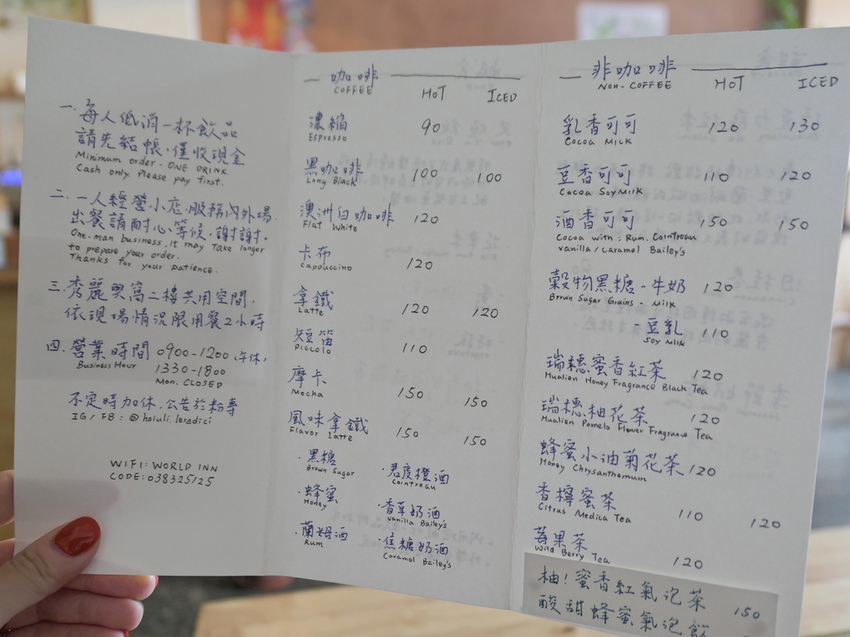 一. 每人低消一杯飲品
請先結帳.僅收現金
Minimum order. ONE DRINK
Cash only. Please pay first.
二. 一人經營小店.服務內外場.
出餐請耐心等候.謝謝.
One-man business, it may Take longer
to prepare your order.
Thanks for your patience.
三. 秀麗與窩二樓共用空間,
依現場情況限用餐2小時
四. 營業時間 0900-1200 (午休)
Business Hour 1330-1800
Mon. CLOSED
不定時加休.公告於粉專
IG/FB:
WIFI: WORLD INN
CODE: 038325125
咖啡
COFFEE HOT ICED
濃縮 90
Espresso
黑咖啡 100 100
Long Black
澳洲白咖啡 120
Flat White
卡布 120
Cappuccino
拿鐵 120 120
Latte
短笛 110
Piccolo
摩卡 150 150
Mocha
風味拿鐵 150 150
Flavor Latte
·黑糖 ·君度橙酒
Brown Sugar Cointreau
·蜂蜜 ·香草奶酒
Honey Vanilla Bailey's
·蘭姆酒 ·焦糖奶酒
Rum Caramel Bailey's
非咖啡
NON-COFFEE HOT ICED
乳香可可 120 130
Cocoa Milk
豆香可可 110 120
Cocoa Soy Milk
酒香可可 150 150
Cocoa with: Rum, Cointreau
Vanilla/Caramel Bailey's
穀物黑糖-牛奶 120
Brown Sugar Grains - Milk
-豆乳 110
Soy Milk
瑞穗蜜香紅茶 120
Hualien Honey Fragrance Black Tea
瑞穗柚花茶 120
Hualien Pomelo Flower Fragrance Tea
蜂蜜小油菊花茶 120
Honey Chrysanthemum
香檸蜜茶 110 120
Citrus Medica Tea
莓果茶 120
Wild Berry Tea
柚!蜜香紅氣泡茶 150
酸甜蜂蜜氣泡飲